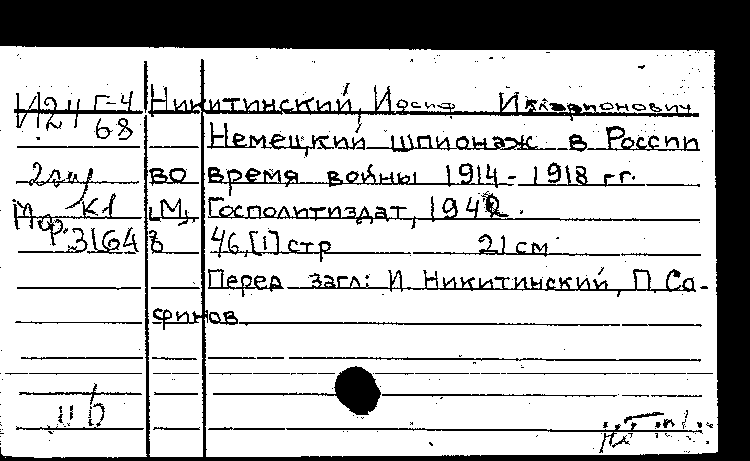 И24 Г-4 Никитинский, Иосиф Илларионович
68 Немецкий шпионаж в России
2 эк во время войны 1914-1918 гг.
К1 [М], Госполитиздат, 1942.
Мар. 3164 8 46,[1] стр 21 см
Перед загл: И. Никитинский, П. Со-
финов.